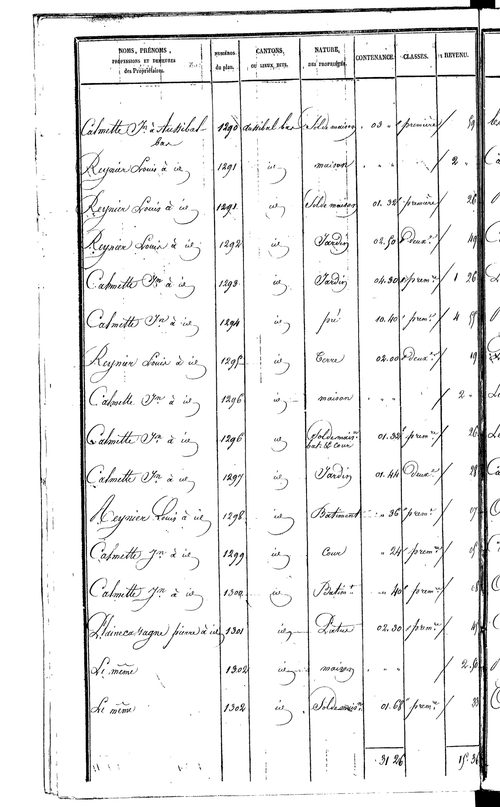 NOMS, PRÉNOMS, PROFESSIONS ET DEMEURES des Propriétaires. NUMÉROS du plan. CANTONS, OU LIEUX, DITS. NATURE, DES PROPRIÉTÉS. CONTENANCE. CLASSES. REVENU.
Calmette Jn à Aussibal bas 1290 aussibal bas Sol de maison 03 " première 89
Reynier Louis à id 1291 id maison " " " 2 "
Reynier Louis à id 1291 id Sol de maison 01.32 première 26
Reynier Louis à id 1292 id Jardin 02.50 Deux.e 49
Calmette Jn à id 1293 id Jardin 04.30 prem.re 1 26
Calmette Jn à id 1294 id pré 10.40 prem.re 4
Reynier Louis à id 1295 id Terre 02.00 Deux.e 19
Calmette Jn à id 1296 id maison " " " 2 "
Calmette Jn à id 1296 id Sol de mais.n bat. et cour 01.32 prem.re 26
Calmette Jn à id 1297 id Jardin 01.44 Deux.e 28
Reynier Louis à id 1298 id Batiment " 36 prem.re 07
Calmette Jn à id 1299 id Cour " 24 prem.re 05
Calmette Jn à id 1300 id Batim.t " 40 prem.re 08
pierre à id 1301 id Patue 02.30 prem.re 45
Le même 1302 id maison " " " 2.50
Le même 1302 id Sol de mais.n 01.68 prem.re 33
31 26 15. 36